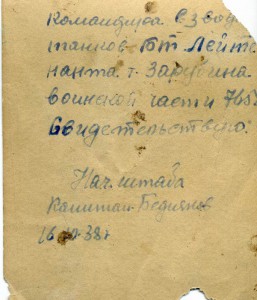 Командира взвод
танков БТ Лейте
нанта т. Зарубина
воинской части 765
Свидетельствую:
Нач. штаба
Капитан
16 38г